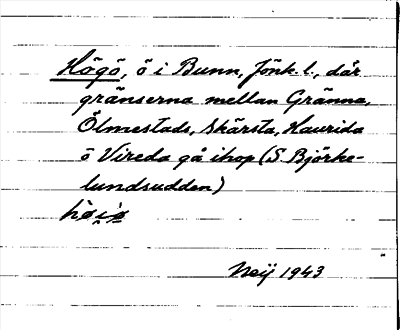 Högö, ö i Bunn, Jönk. l., där
gränserna mellan Gränna,
Ölmestads, Skärsta, Haurida
ö Vireda gå ihop (S. Björke-
lundsudden)
Neij 1943